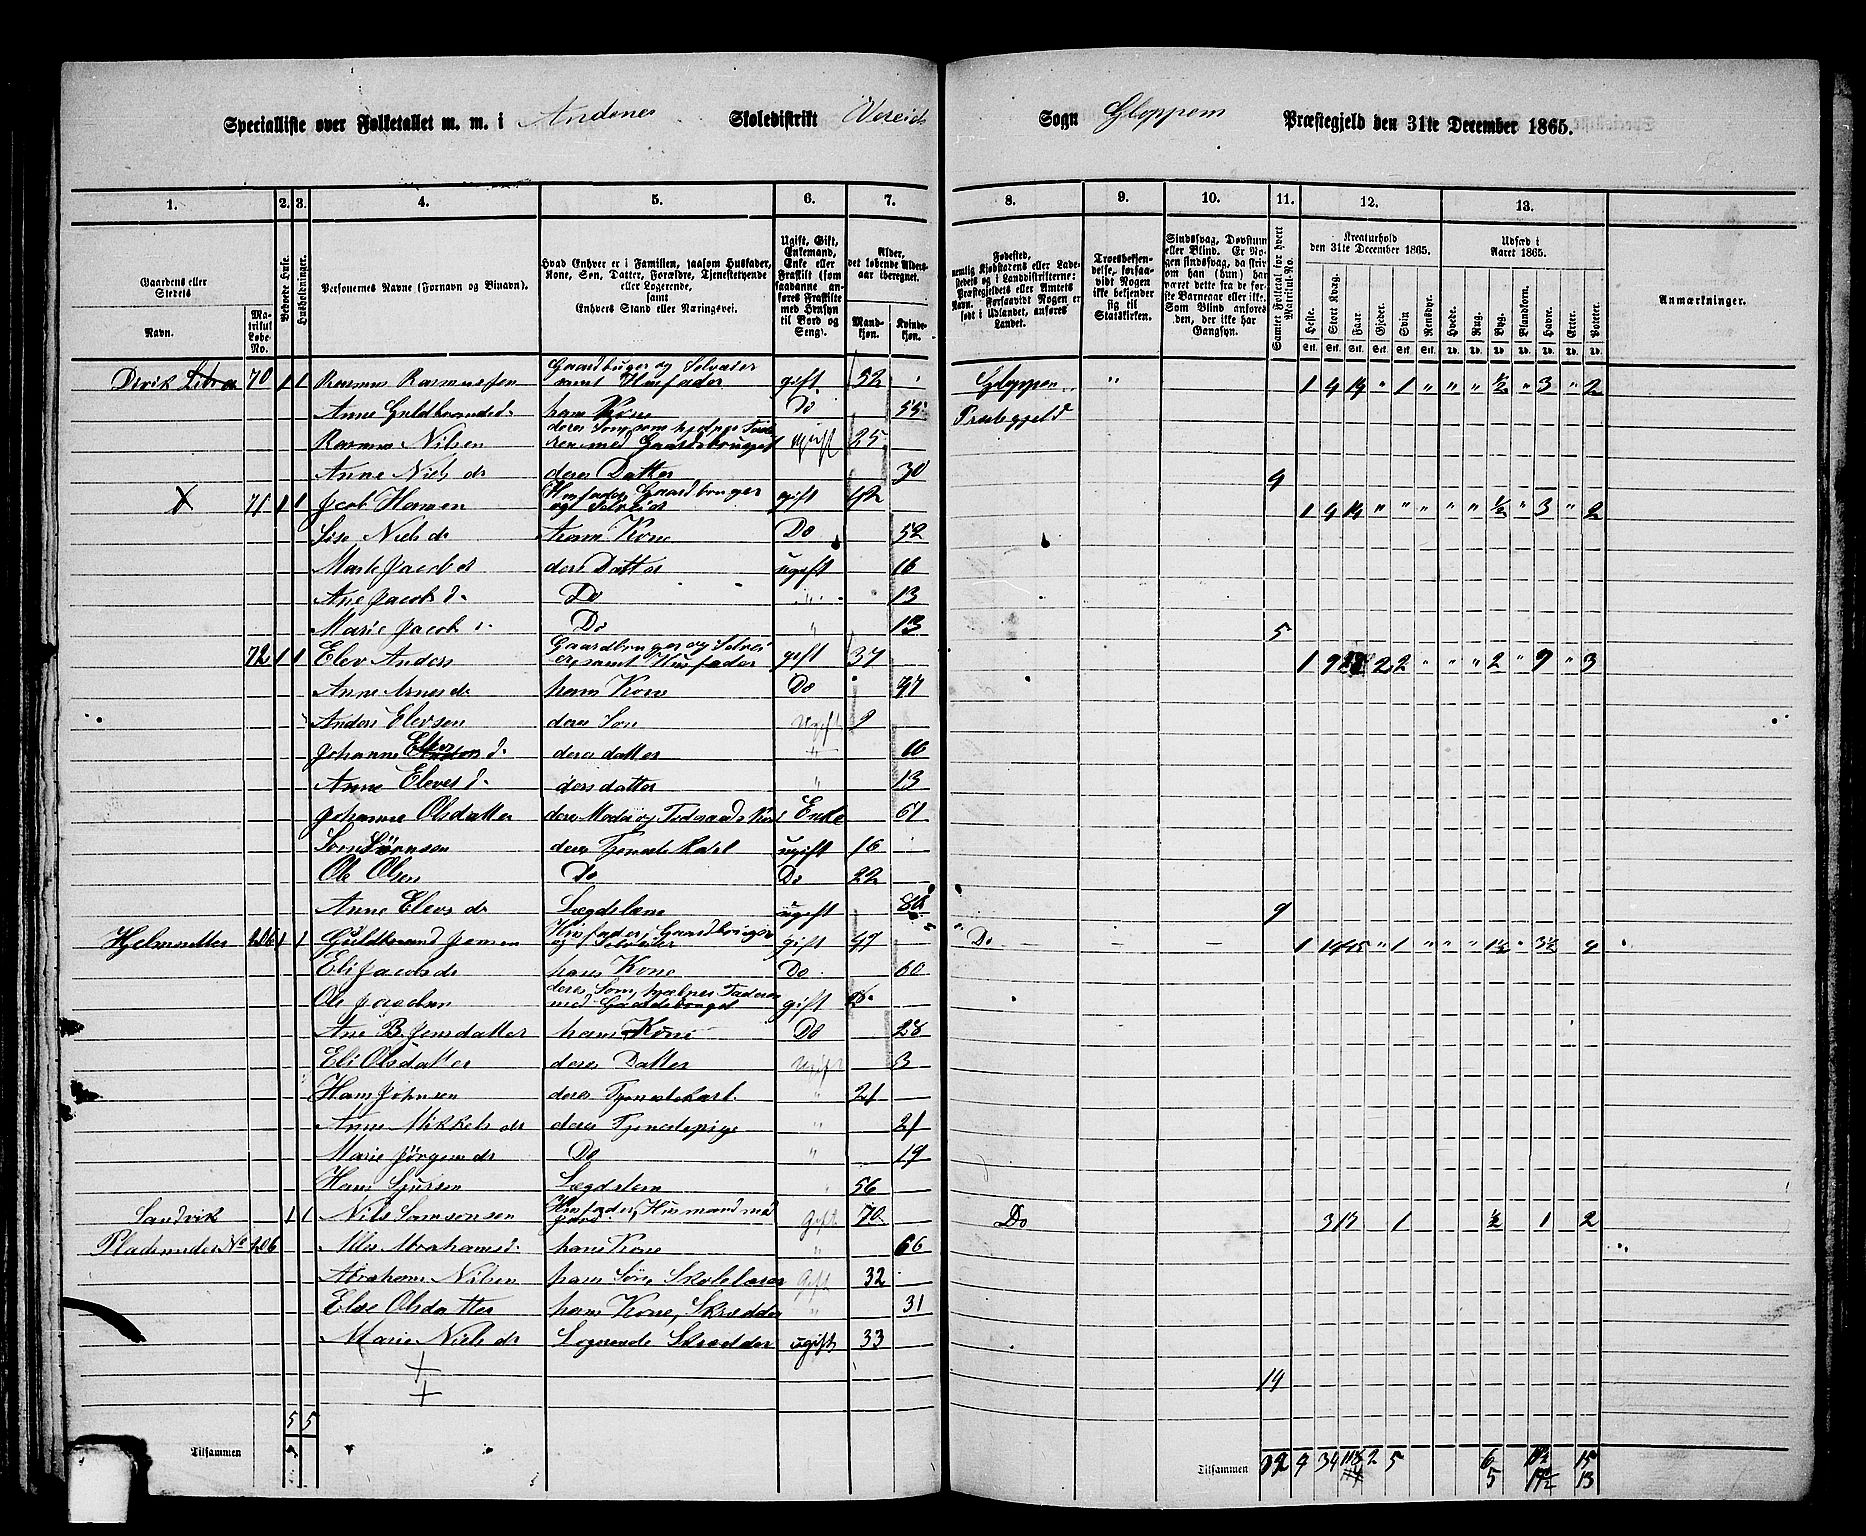 Specialliste over Folketallet m. m. i Andenes Skoledistrikt Vereide Sogn Gloppen Præstegjeld den 31te December 1865.
1. 2. 3. 4. 5. 6. 7. 8. 9. 10. 11. 12. 13.
Gaardens eller Stedets
Navn.
Matrikul Løbe-No.
Beboede Huse.
Husholdninger.
Personernes Navne (Fornavn og Binavn).
Hvad Enhver er i Familien, saasom Husfader, Kone, Søn, Datter, Forældre, Tjenestetyende eller Logerende, samt Enhvers Stand eller Næringsvei.
Ugift, Gift, Enkemand, Enke eller Fraskilt (som saadanne anføres Fraskilte med Hensyn til Bord og Seng).
Alder, det løbende Aldersaar iberegnet.
Mandkjøn.
Kvindekjøn.
Fødested, nemlig Kjøbstadens eller Ladestedets og i Landdistrikterne: Præstegjeldets eller Amtets Navn. Forsaavidt Nogen er født i Udlandet, anføres Landet.
Troesbekjendelse, forsaavidt Nogen ikke bekjender sig til Statskirken.
Sindssvag, Døvstum eller Blind. Er Nogen sindssvag, da skrives om han (hun) har været dette fra de første Barneaar eller ikke. Som Blind anføres den, der ikke har Gangsyn.
Samlet Folketal for hvert Matrikul-No.
Kreaturhold den 31te December 1865.
Heste. Stort Kvæg. Faar. Gjeder. Svin. Rensdyr.
Udsæd i Aaret 1865.
Hvede. Rug. Byg. Blandkorn. Havre. Erter. Poteter.
Anmærkninger.
70 1 1 Rasmus Rasmussen Gaardbruger og Selveier samt Husfader gift 52 Gloppen " 1 4 14 " 1 " " " ½ " 3 " 2
Anne Guldbrandsd. hans Kone Do 55 Præstegjeld
Rasmus Nilsen ugift 25
Anne Niels dr deres Datter 30 4
X 71 1 1 Jacob Hansen Husfader Gaardbruger og Selveier gift 42 1 4 14 " " " " " ½ " 3 " 2
Niels dr hans Kone Do 52
Jacob dr deres Datter ugift 16
Ane Jacobs d. Do " 13
Marie Jacob d. Do " 13 5
72 1 1 Elev Anders Gaardbruger og Selveier samt Husfader gift 37 1 9 2 2 " " " 2 " 7 " 3
Anne hans Kone Do 47
Anders Elevsen deres Søn Ugift 9
Johanne Elevs d. deres datter " 16
Anne Elevs d. deres datter " 13
Johanne Olsdatter deres Moder og Enke 61
deres Tjeneste Karl ugift 16
Ole Olsen Do Do 22
Anne Elevs dr Lægdslem ugift 9
106 1 1 Guldbrand Jensen Husfader, Gaardbruger og Selveier gift 47 Do 1 " 1 " " " 1½ " 3½ 4
Eli Jacobs dr hans Kone Do 60
Ole deres Søn, hjælper Faderen med Gaardsbruget gift
Ane B. Jensdatter hans Kone Do 28
Eli Olsdatter deres Datter Ugift 3
Hans Johnsen deres Tjenestekarl " 21
Anne Mikkels dr deres Tjenestepige " 21
Marie Jørgens dr Do " 19
Hans Lægdslem 56
Sandvik 1 1 Nils Samsonsen Husfader, Husmand med Jord Gift 70 Do 3 13 1 ½ 1 2
Plads under No 106 Abrahamsd. hans Kone " 66
Abraham Nilsen hans Søn Skolelærer Gift 32
Else Olsdatter hans Kone, Skrædder " 31
Marie Niels dr Logerende Skrædder ugift 33
14
5 5
Tilsammen
Tilsammen 4 34 2 5 6 15
5 13